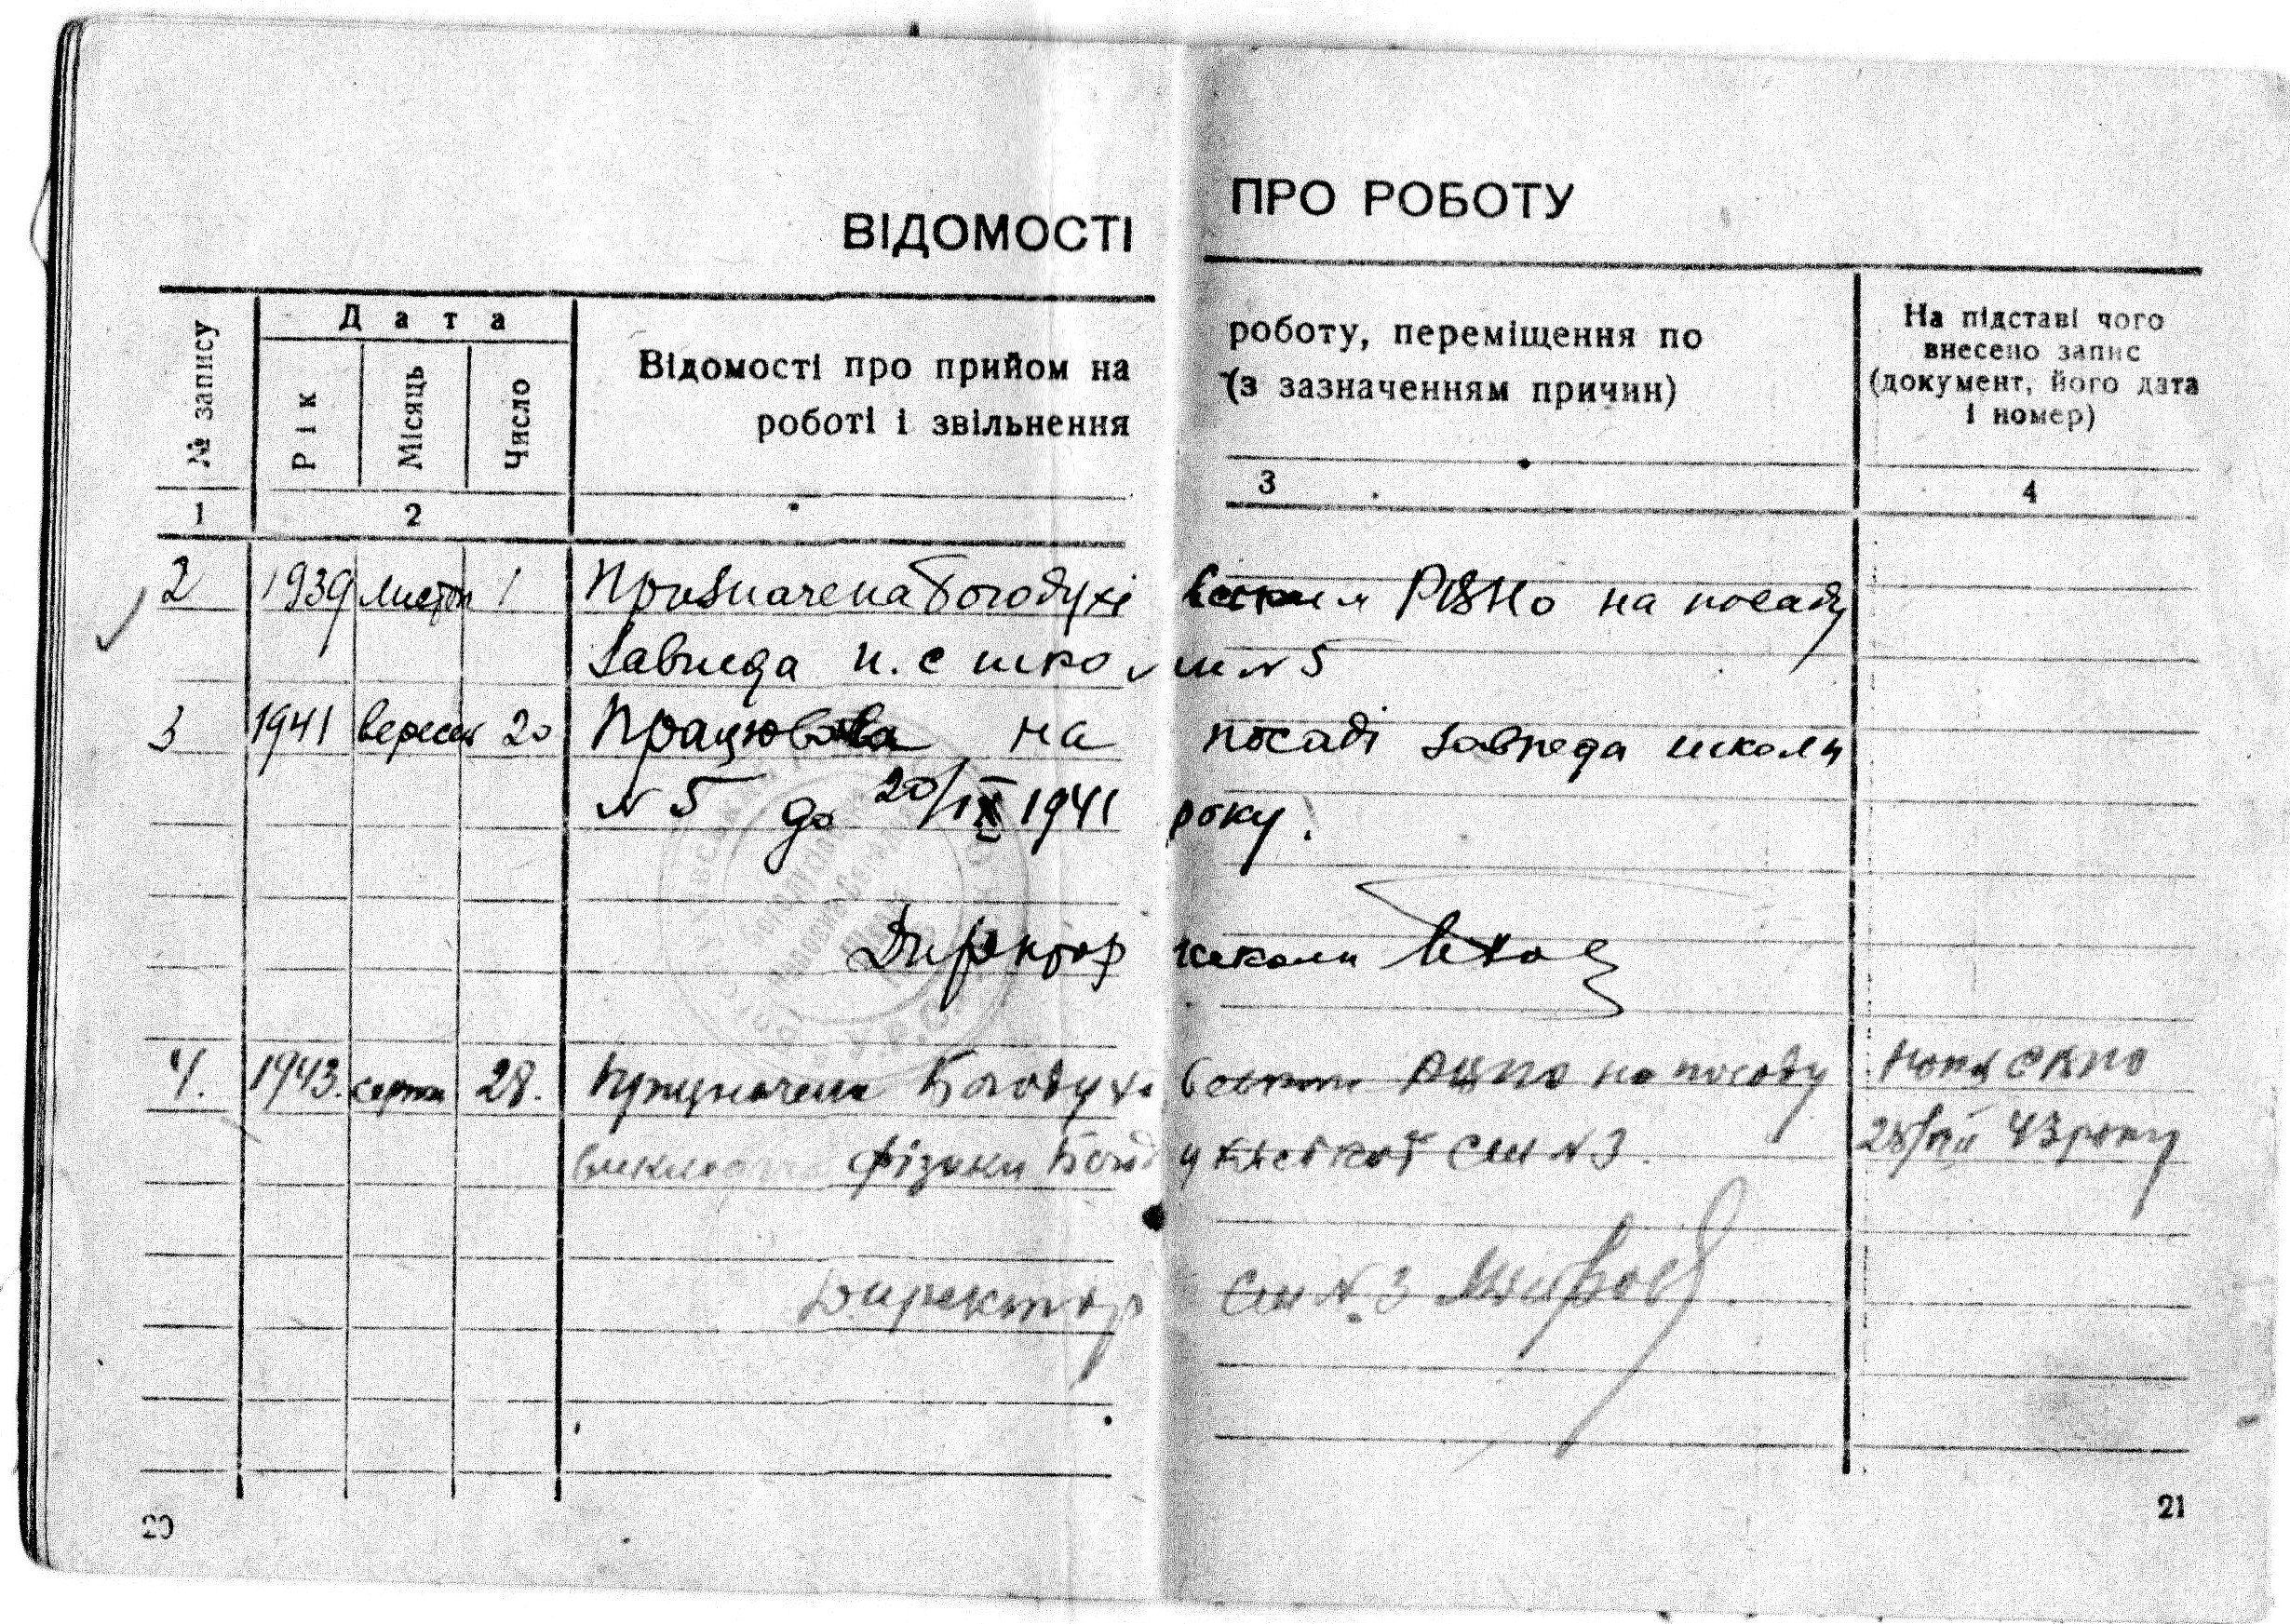 ВІДОМОСТІ ПРО РОБОТУ
№ запису
Дата
Рік
Місяць
Число
Відомості про прийом на роботу, переміщення по
роботі і звільнення (з зазначенням причин)
На підставі чого
внесено запис
(документ, його дата
і номер)
1 2 3 4
2 1939 листоп 1 Призначена Богодухівським РВНО на посаду
Завпеда н.с школи № 5
3 1941 вересень 20 Працювала на посаді завпеда школи
№ 5 до 20/IX 1941 року.
Директор школи
4. 1943. серпн 28. Призначена Богодухівським на посаду
викладача фізики Богодухівської СШ № 3. 28/VIII 43 року
Директор СШ № 3
20 21